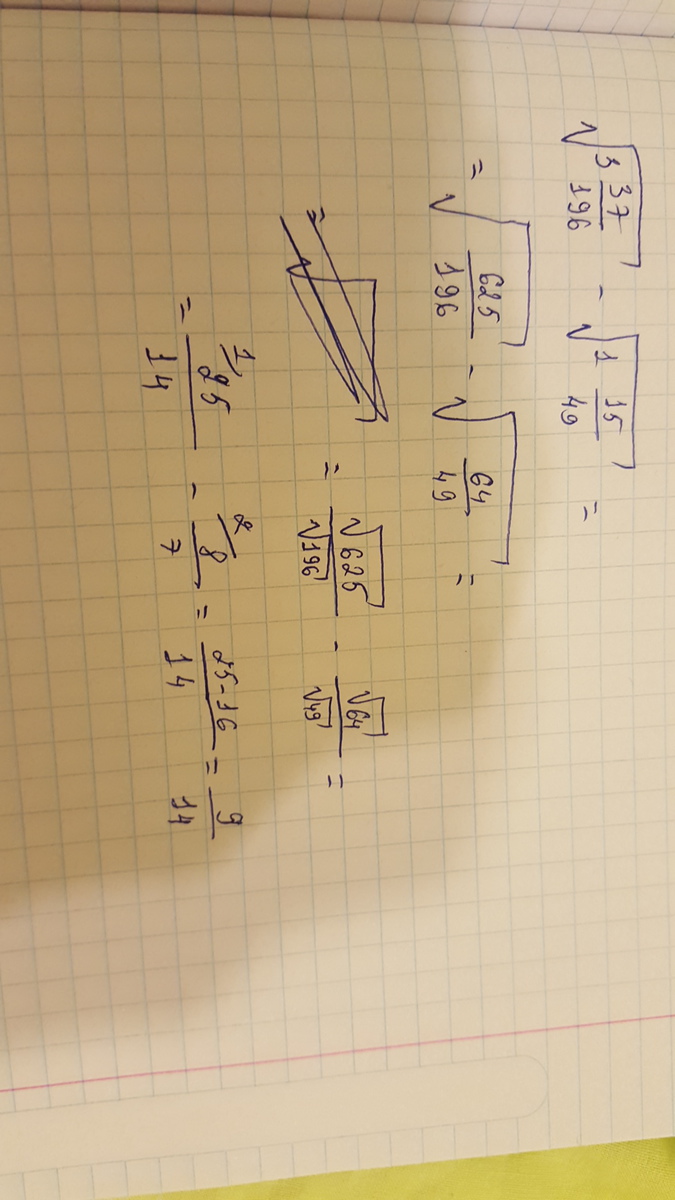 √(3 37/196) - √(1 15/49) =
= √(625/196) - √(64/49) =
= √625/√196 - √64/√49 =
= 25/14 (1 - 8/7 (2 = 25-16/14 = 9/14